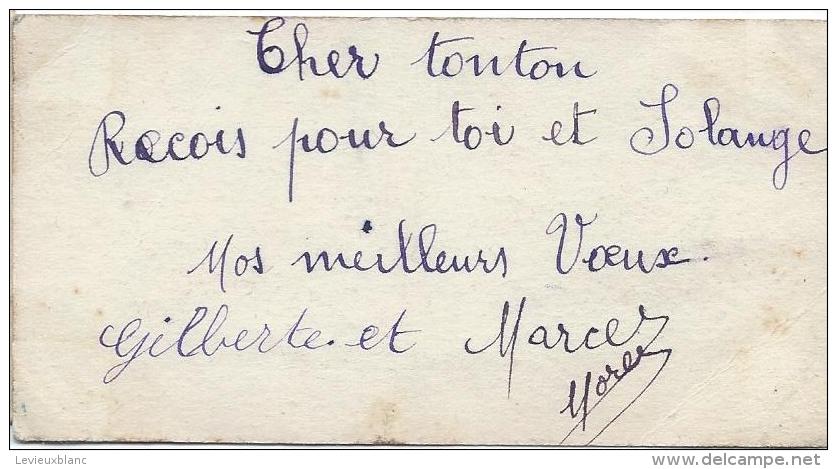 Cher tonton
Recois pour toi et Solange
Nos meilleurs Vœux.
Gilberte et Marcel
Levieuxblanc
delcampe.net